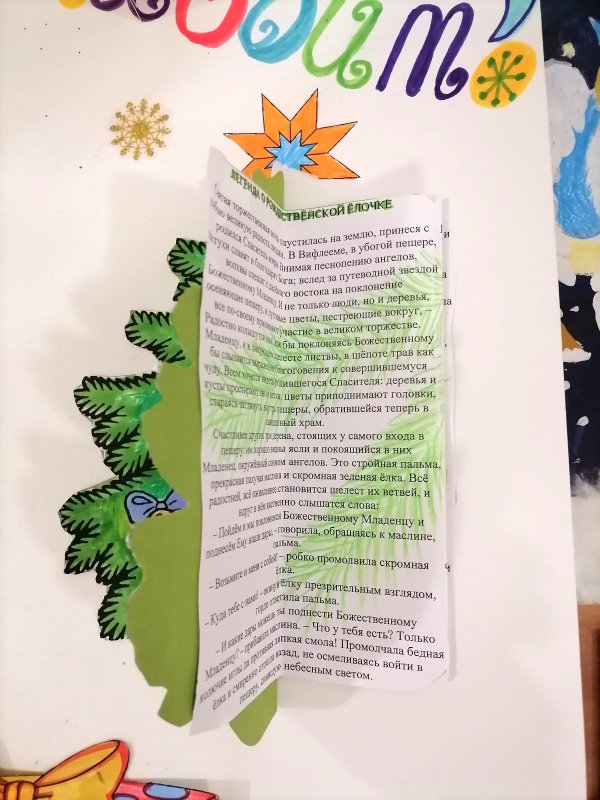 любим!
ЛЕГЕНДА О РОЖДЕСТВЕНСКОЙ ЁЛОЧКЕ
Святая торжественная ночь спустилась на землю, принеся с
собою великую радость людям. В Вифлееме, в убогой пещере,
родился Спаситель мира. Внимая песнопению ангелов,
пастухи славят и благодарят Бога; вслед за путеводной звездой
волхвы спешат с далёкого востока на поклонение
Божественному Младенцу. И не только люди, но и деревья,
осеняющие пещеру, и луговые цветы, пестреющие вокруг,
все по-своему принимают участие в великом торжестве.
Радостно колышутся они, как бы поклоняясь Божественному
Младенцу, и в ликующем шелесте листвы, в шёпоте трав как
бы слышится выражение благоговения к совершившемуся
чуду. Всем хочется видеть родившегося Спасителя: деревья и
кусты простирают свои ветви, цветы приподнимают головки,
стараясь заглянуть внутрь пещеры, обратившейся теперь в
священный храм.
Счастливее других три дерева, стоящих у самого входа в
пещеру: им хорошо видны ясли и покоящийся в них
Младенец, окружённый сонмом ангелов. Это стройная пальма,
прекрасная пахучая маслина и скромная зеленая ёлка. Всё
радостней, всё оживленнее становится шелест их ветвей, и
вдруг в нём явственно слышатся слова:
– Пойдём и мы поклонимся Божественному Младенцу и
поднесём Ему наши дары, – говорила, обращаясь к маслине,
пальма.
– Возьмите и меня с собой! – робко промолвила скромная
ёлка.
– Куда тебе с нами! – окинув ёлку презрительным взглядом,
гордо ответила пальма.
– И какие дары можешь ты поднести Божественному
Младенцу? – прибавила маслина. – Что у тебя есть? Только
колючие иглы да противная липкая смола! Промолчала бедная
ёлка и смиренно отошла назад, не осмеливаясь войти в
пещеру, сиявшую небесным светом.